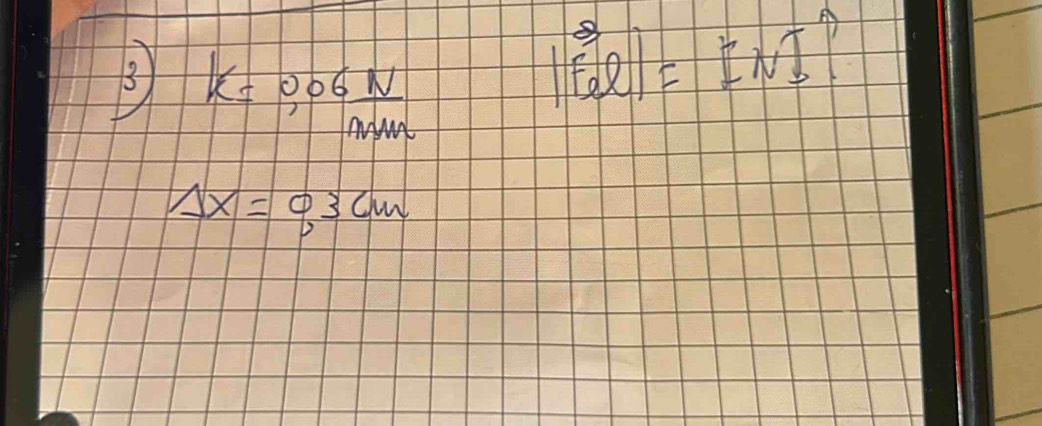 3) K = 0,06 N/mm |F⃗el| = [N]
Δx = 0,3 cm